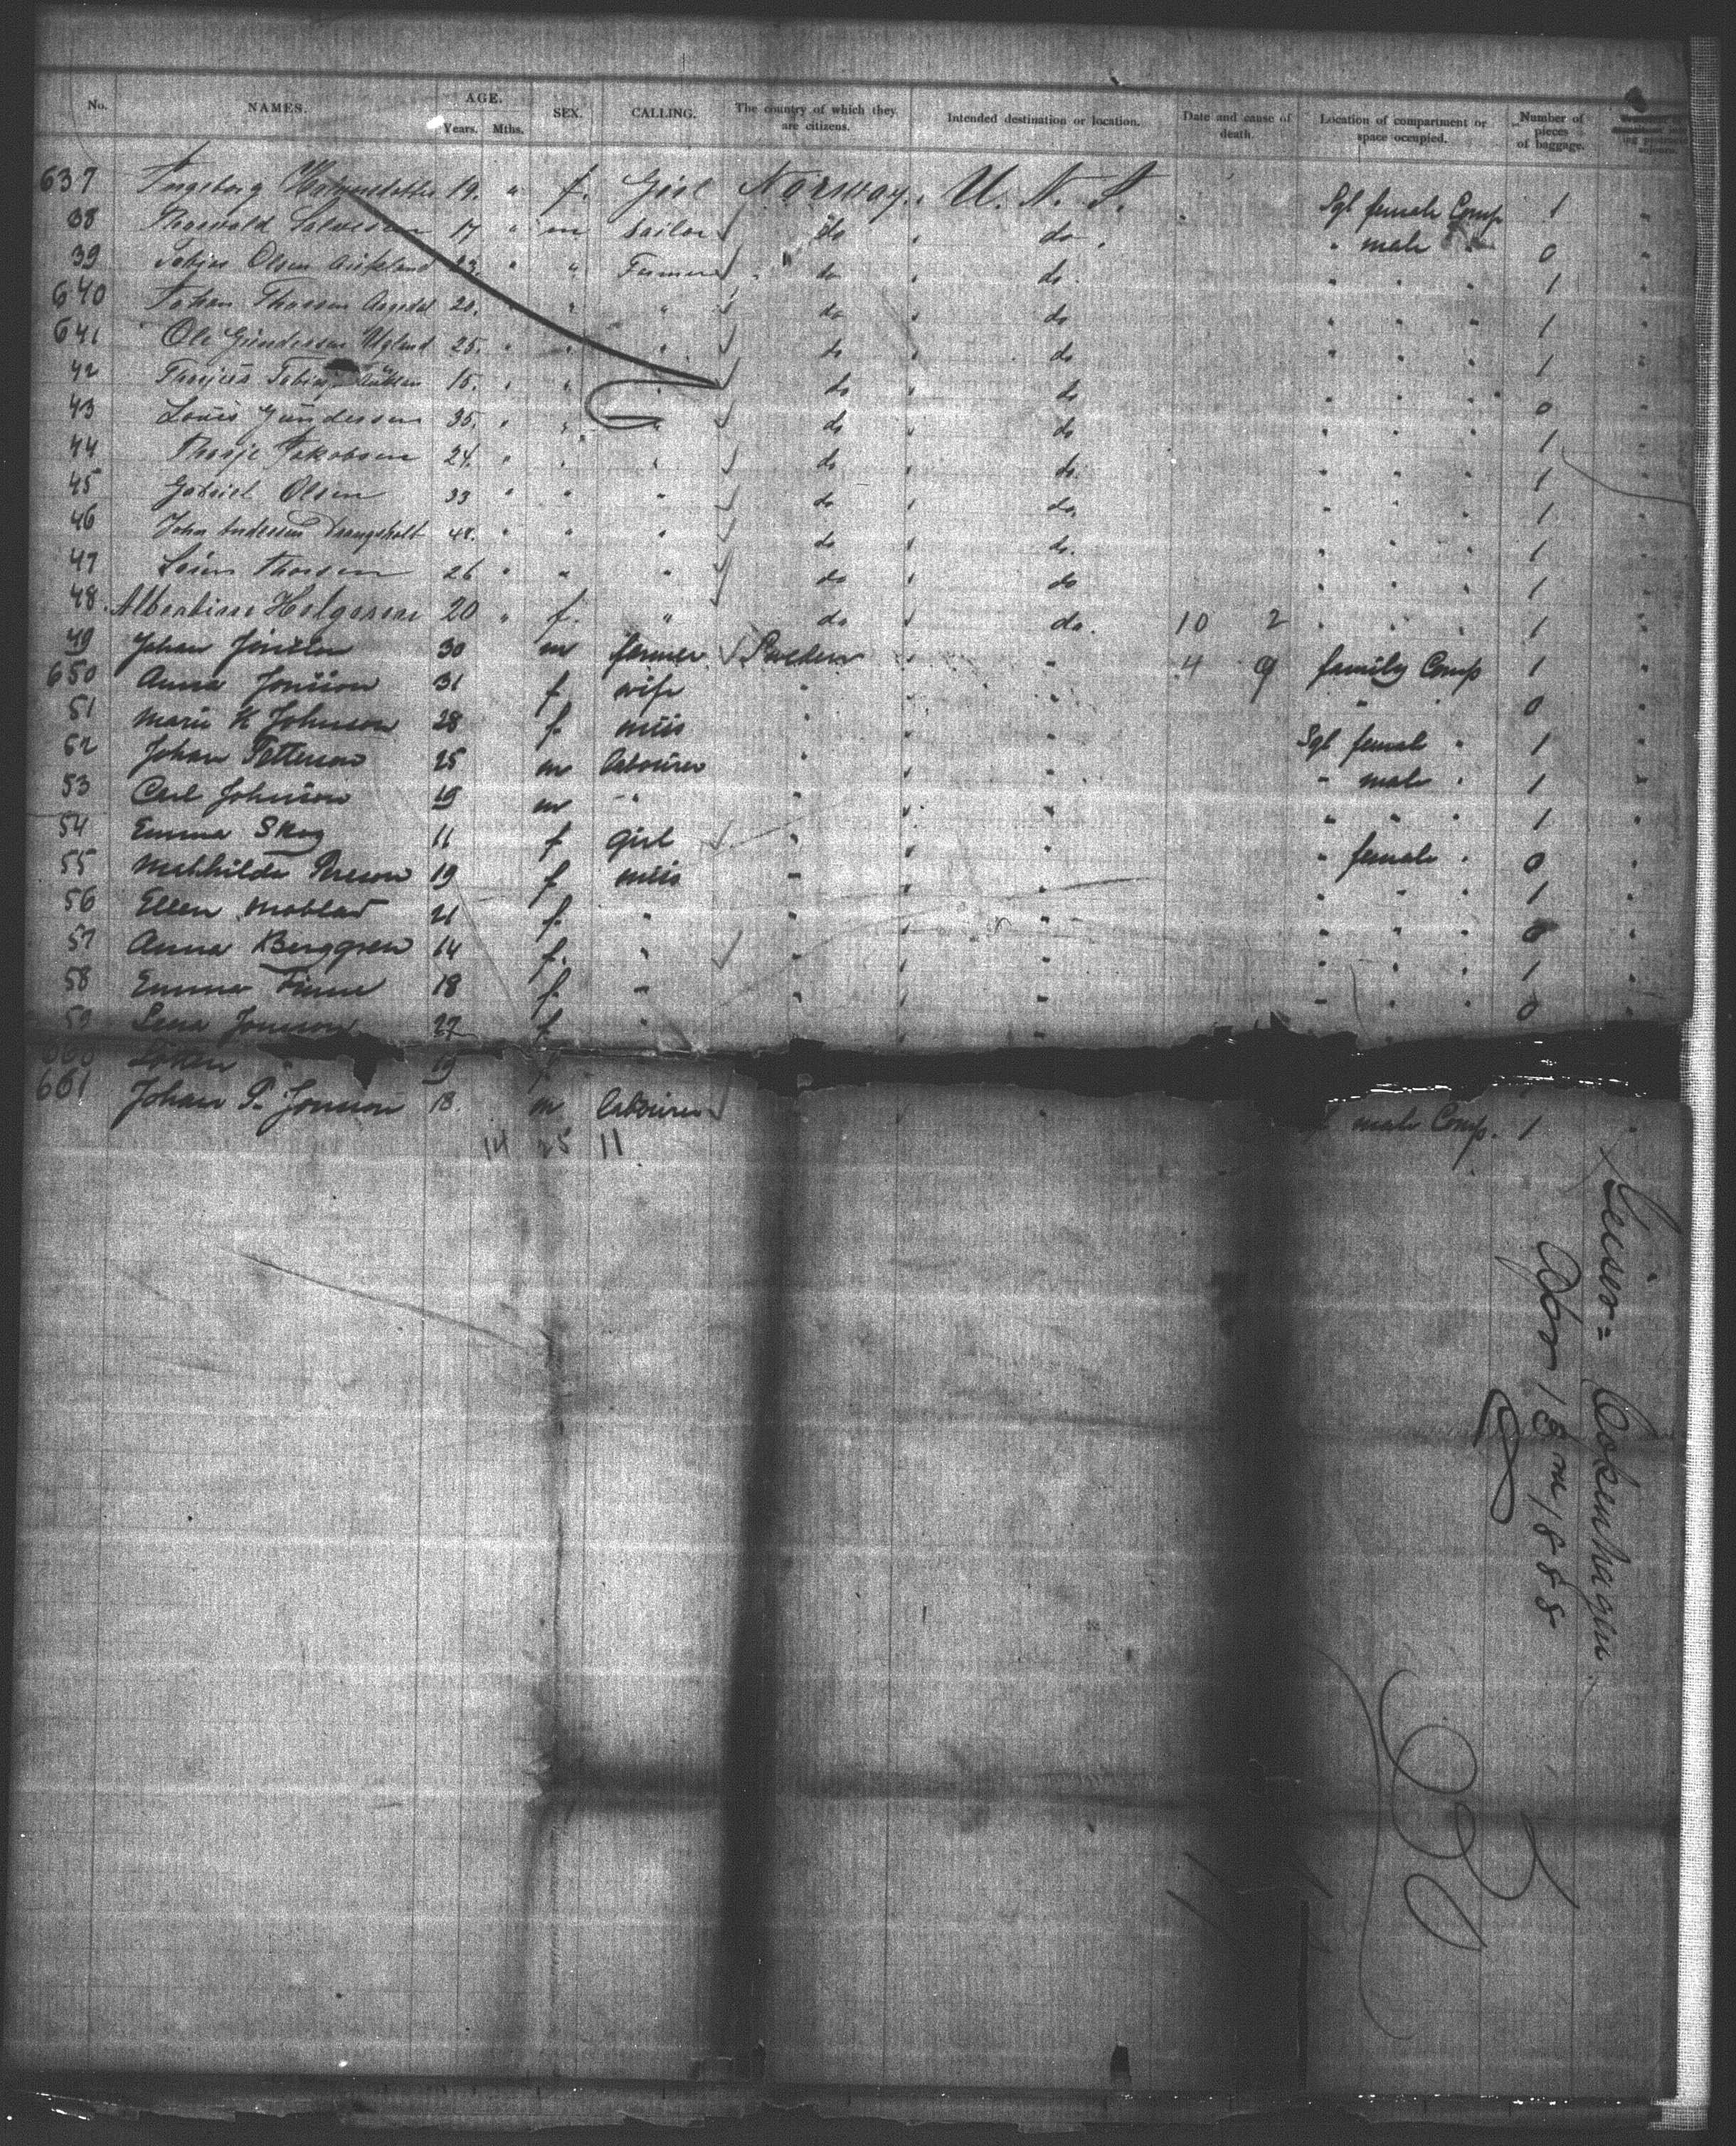 No. NAMES. AGE. Years. Mths. SEX. CALLING. The country of which they are citizens. Intended destination or location. Date and cause of death. Location of compartment or space occupied. Number of pieces of baggage.
637 Ingeborg 19. " f. Girl Norway. " U. N. S. Sgl female Comp 1 "
38 Thorwald Salvesen 17 " m Sailor do " do. " male " 0 "
39 Tobias Olsen 23. " " Farmer do " do. " " " 1 "
640 Johan Thorsen 20. " " " do " do " " " 1 "
641 Ole Gundersen Ugland 25. " " " do " do " " " 1 "
42 Tobias 15. " " " do " do " " " 0 "
43 Louis Gundersen 35. " " " do " do " " " 1 "
44 Thorje Jakobsen 24. " " " do " do. " " " 1 "
45 Gabriel Olsen 33 " " " do " do, " " " 1 "
46 John Andersen 48. " " " do " do. " " " 1 "
47 Sören Thorsen 26 " " " do " do " " " 1 "
48. Albertine Helgesen 20 " f. " do " do. 10 2 " " " 1 "
49 Johan Jonsson 30 m farmer Sweden " " 4 9 family Comp 1 "
650 Anna Jonsson 31 f wife " " " " " 0 "
51 Maria K Johnson 28 f. miss " " " Sgl female " 1 "
52 Johan Petterson 25 m labourer " " " " male " 1 "
53 Carl Johnson 19 m " " " " " " " 1
54 Emma Skog 11 f girl " " " " female " 0 "
55 Mathhilda Person 19 f miss " " " " " " 1 "
56 Ellen Moblad 21 f. " " " " " " " 0 "
57 Anna Berggren 14 f. " " " " " " " 1 "
58 Emma 18 f. " " " " " " " 0 "
59 Lena Jonsson 27 f " " "
660 " 19 f
661 Johan P. Jonson 18. m labourer " " male Comp. 1 "
14 25 11
Copenhagen
Apr 18th 1888